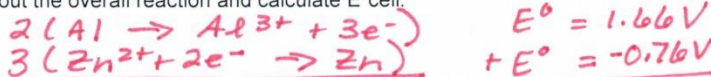 out the overall reaction and calculate E cell.
2 ( Al → Al ³⁺ + 3e⁻) E⁰ = 1.66 V
3 ( Zn²⁺ + 2e⁻ → Zn) + E⁰ = -0.76V